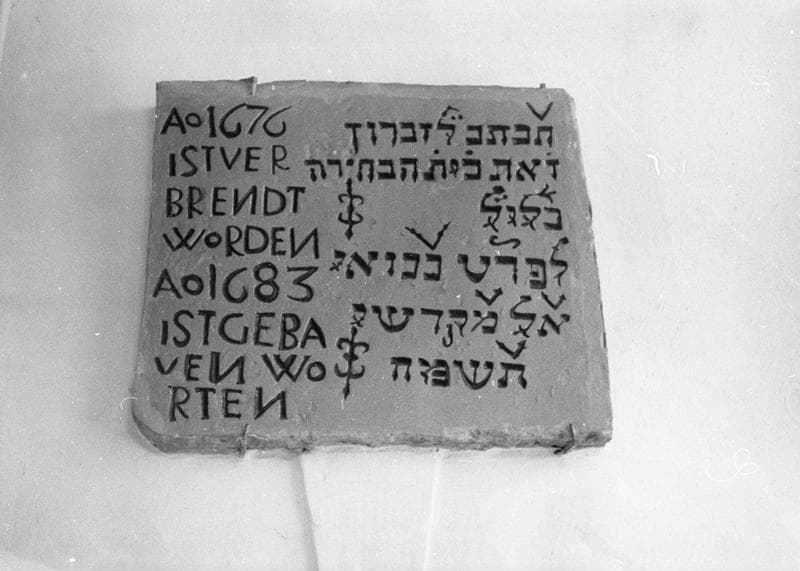 Ao1676
ISTVER
BRENDT
WORDEN
Ao1683
ISTGEBA
VEN WO
RTEN
תכתב לזכרון
זאת בית הבחירה
כלול
לפרט בבואי
אל מקדשי
תשמח